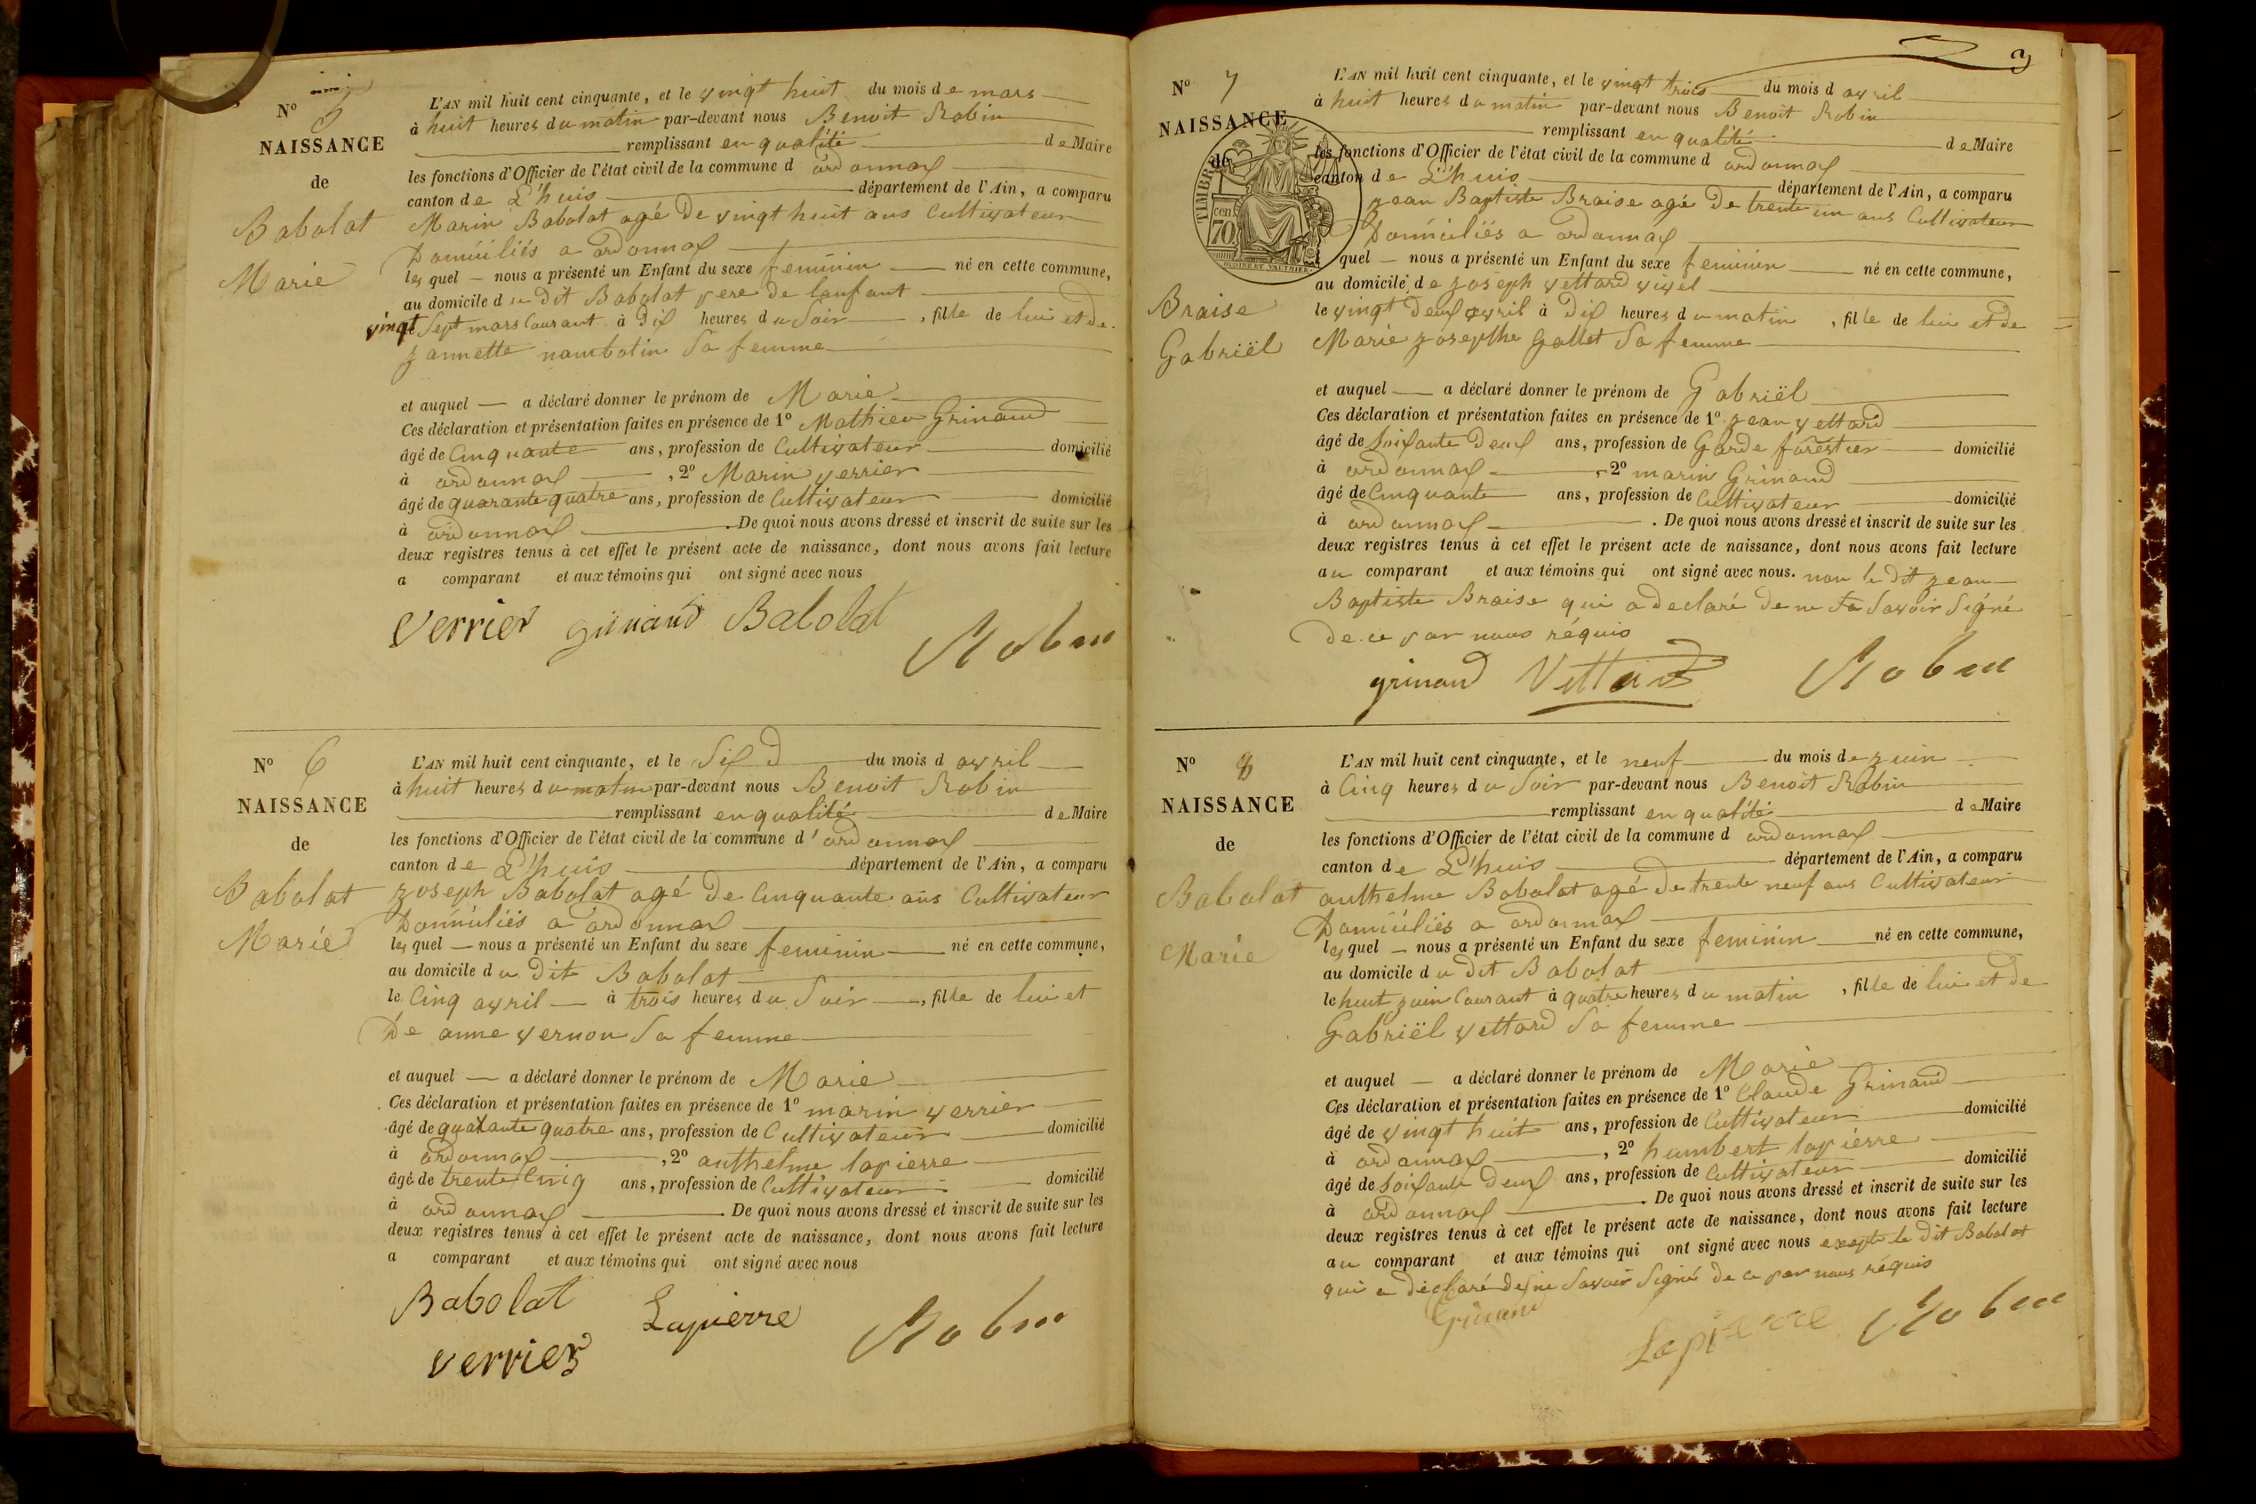 N° 5
NAISSANCE
de
Babolat
Marie
L'AN mil huit cent cinquante, et le vingt huit du mois de mars
à huit heures du matin par-devant nous Benoit Robin
remplissant en qualité de Maire
les fonctions d'Officier de l'état civil de la commune d ordonnax
canton de L'huis département de l'Ain, a comparu
Marin Babolat agé de vingt huit ans Cultivateur
Domiciliés a ordonnax
lequel nous a présenté un Enfant du sexe feminin né en cette commune,
au domicile du dit Babolat pere de lenfant
vingt Sept mars Courant à Dix heures du Soir, fille de lui et de
jannette nambotin Sa femme
et auquel a déclaré donner le prénom de Marie
Ces déclaration et présentation faites en présence de 1° Mathieu Grinand
âgé de Cinquante ans, profession de Cultivateur domicilié
à ordonnax, 2° Marin verrier
âgé de quarante quatre ans, profession de Cultivateur domicilié
à ordonnax. De quoi nous avons dressé et inscrit de suite sur les
deux registres tenus à cet effet le présent acte de naissance, dont nous avons fait lecture
a comparant et aux témoins qui ont signé avec nous
verrier grinand Babolat
Robin
N° 6
NAISSANCE
de
Babolat
Marie
L'AN mil huit cent cinquante, et le Six du mois d avril
à huit heures du matin par-devant nous Benoit Robin
remplissant en qualité de Maire
les fonctions d'Officier de l'état civil de la commune d'ordonnax
canton de L'huis département de l'Ain, a comparu
joseph Babolat agé de Cinquante ans Cultivateur
Domiciliés a ordonnax
lequel nous a présenté un Enfant du sexe feminin né en cette commune,
au domicile du dit Babolat
le Cinq avril à trois heures du Soir, fille de lui et
De anne vernon Sa femme
et auquel a déclaré donner le prénom de Marie
Ces déclaration et présentation faites en présence de 1° marin verrier
âgé de quarante quatre ans, profession de Cultivateur domicilié
à ordonnax, 2° anthelme lapierre
âgé de trente Cinq ans, profession de Cultivateur domicilié
à ordonnax. De quoi nous avons dressé et inscrit de suite sur les
deux registres tenus à cet effet le présent acte de naissance, dont nous avons fait lecture
a comparant et aux témoins qui ont signé avec nous
Babolat Lapierre Robin
verrier
N° 7
NAISSANCE
de
TIMBRE
cen
70
Braise
Gabriël
L'AN mil huit cent cinquante, et le vingt trois du mois d avril
à huit heures du matin par-devant nous Benoit Robin
remplissant en qualité de Maire
les fonctions d'Officier de l'état civil de la commune d ordonnax
canton de L'huis département de l'Ain, a comparu
jean Baptiste Braise agé de trente un ans Cultivateur
Domiciliés a ordonnax
quel nous a présenté un Enfant du sexe feminin né en cette commune,
au domicile de joseph vettard
le vingt Deux avril à Dix heures du matin, fille de lui et de
Marie josepthe Gallet Sa femme
et auquel a déclaré donner le prénom de Gabriël
Ces déclaration et présentation faites en présence de 1° jean vettard
âgé de Soixante Deux ans, profession de Garde forestier domicilié
à ordonnax, 2° marin Grinand
âgé de Cinquante ans, profession de Cultivateur domicilié
à ordonnax. De quoi nous avons dressé et inscrit de suite sur les
deux registres tenus à cet effet le présent acte de naissance, dont nous avons fait lecture
au comparant et aux témoins qui ont signé avec nous. non le dit jean
Baptiste Braise qui a declaré de ne Savoir Signé
de ce par nous réquis
grinand Vettard Robin
N° 8
NAISSANCE
de
Babolat
Marie
L'AN mil huit cent cinquante, et le neuf du mois de juin
à Cinq heures du Soir par-devant nous Benoit Robin
remplissant en qualité de Maire
les fonctions d'Officier de l'état civil de la commune d ordonnax
canton de L'huis département de l'Ain, a comparu
anthelme Babolat agé de trente neuf ans Cultivateur
Domiciliés a ordonnax
lequel nous a présenté un Enfant du sexe feminin né en cette commune,
au domicile du dit Babolat
le huit juin Courant à quatre heures du matin, fille de lui et de
Gabriël vettard Sa femme
et auquel a déclaré donner le prénom de Marie
Ces déclaration et présentation faites en présence de 1° Claude Grinand
âgé de vingt huit ans, profession de Cultivateur domicilié
à ordonnax, 2° humbert lapierre
âgé de Soixante Deux ans, profession de Cultivateur domicilié
à ordonnax. De quoi nous avons dressé et inscrit de suite sur les
deux registres tenus à cet effet le présent acte de naissance, dont nous avons fait lecture
au comparant et aux témoins qui ont signé avec nous excepté le dit Babolat
qui a déclaré de ne Savoir Signé de ce par nous réquis
Grinand Lapierre Robin